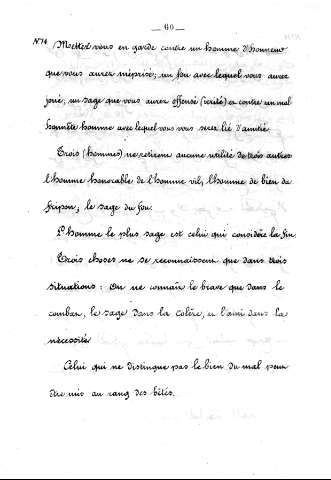 — 60 —
N°14
Mettez vous en garde contre un homme d'honneur
que vous aurez méprisé; un fou avec lequel vous aurez
joué; un sage que vous aurez offensé (irrité) et contre un mal
honnête homme avec lequel vous vous serez lié d'amitié.
Trois (hommes) ne retirent aucune utilité de trois autres
l'homme honorable de l'homme vil; l'homme de bien du
fripon; le sage du fou.
L'homme le plus sage est celui qui considère la fin.
Trois choses ne se reconnaissent que dans trois
situations: On ne connaît le brave que dans le
combat, le sage dans la colère, et l'ami dans la
nécessité
Celui qui ne distingue pas le bien du mal peut
être mis au rang des bêtes.